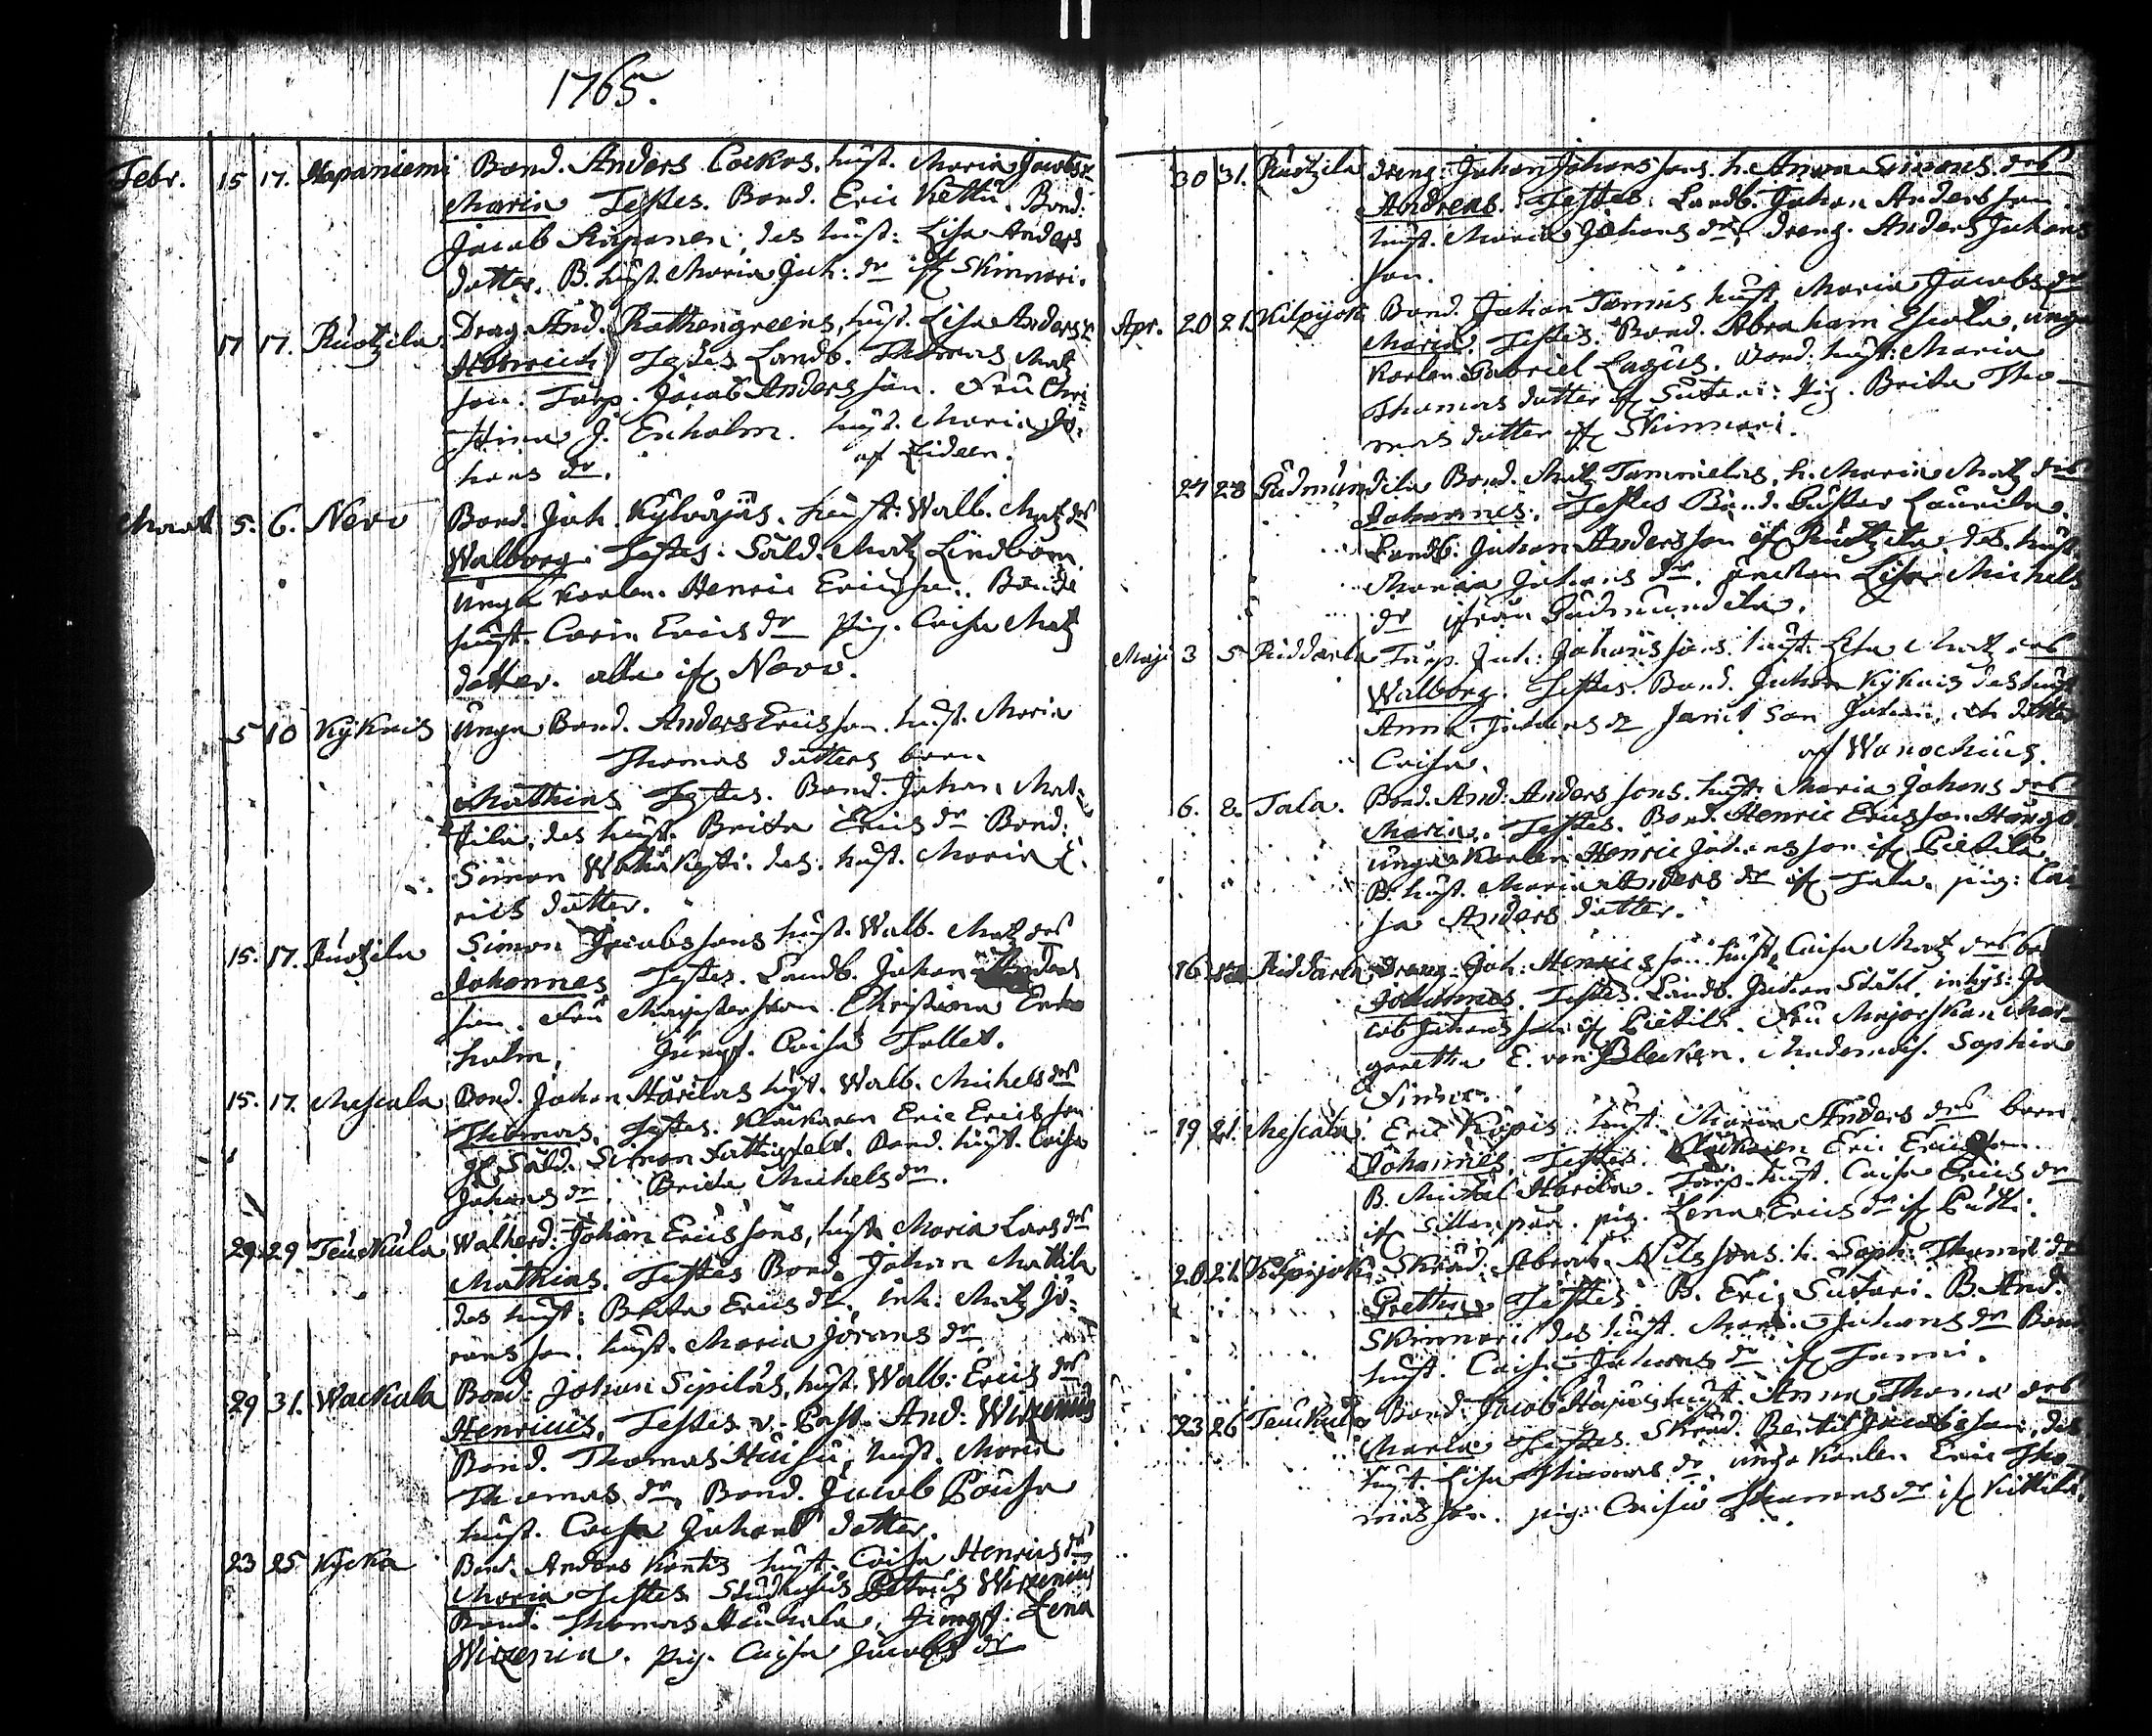 1765.
Febr. 15 17. Hapaniemi Bond. Anders Cockos. hust. Maria Jacobs dr
Maria Testes. Bond. Eric Kettu. Bond.
Jacob Piipanen, des hust: Lisa Anders
dotter. B. hust. Maria Joh: dr if Skinnari.
17 17. Ruotzila Drag. And. Rathengreens, hust. Lisa Anders dr
Henrich Testes Landb. Thomas Matz
son. Torp. Jacob Andersson. Fru Chri=
stina J. Enholm. hust. Maria Jo=
hans dr. af Lideen.
Mart. 5. 6. Nervo Bond. Joh. Kylväjäs. hust: Walb. Matz dr
Walborg. Testes: Sald. Matz Lindbom
Unga Karlen. Henric Ericsson. Bonde
hust. Carin Erics dr pig. Caisa Matz
dotter. alla if Nervo.
5 10 Kyknis Unga Bond. Anders Ericsson hust. Maria
Thomas dotters barn
Mathias Testes. Bond. Johan Mat=
tila, des hust. Brita Erics dr Bond:
Simon Wähäkejti. des. hust. Maria E=
rics dotter.
15. 17. Ruotzila Simon Jacobssons hust. Walb. Matz drs
Johannes Testes. Landb. Johan Anders
son. Fru Magisterskan Christina Enho
holm, Jungf. Caisa Tollet.
15. 17. Mescala Bond. Johan Harilas hust. Walb. Michels drs
Thomas. Testes. Klockaren Eric Ericsson
gl Sald. Simon Fattigfelt. Bond. hust. Caisa
Johans dr. Brita Michels dr.
29. 29 Teuckula Walherd: Johan Ericssons, hust. Maria Lars drs
Mathias. Testes Bond. Johan Mattila
des hust: Brita Erics dr., inh. Matz Jö=
ransson. hust. Maria Jörans dr
29 31. Wackala Bond: Johan Sipilas, hust. Walb: Erics drs
Henricus, Testes v. Past. And: Wirzenius
Bond. Thomas Huisu, hust. Maria
Thomas dr, Bond. Jacob Pousa
hust. Caisa Johans dotter.
23 25 Kycka Bond. Anders Kontis hust. Caisa Henrics drs
Maria Testes Studiosus Petrus Wirzenius
Bond. Thomas Heickala, Jungf. Lena
Wirzenia. pig. Caisa Jacobs dr
30 31. Ruotzila dreng. Johan Johanssons. h. Anna Simons drs
Andreas. Testes: Landb. Johan Andersson
hust. Maria Johans dr, dreng. Anders Johans
son.
Apr. 20 21. Kilpijoki Bond. Johan Tommis hust. Maria Jacobs dr
Maria. Testes. Bond. Abraham Escola, unga
Karlen Gabriel Lagus. Bond. hust: Maria
Thomas dotter if Sutari: Pig. Brita Tho=
mas dotter if Skinnari.
27 28 Gudmundila Bond. Matz Tammelas, h. Maria Matz drs
Johannes. Testes Bond. Gustav Laurila.
Landb. Johan Andersson if Ruotzila, des. hust.
Maria Johans dr. änckan Lisa Michels
dr ifrån Gudmundila.
Maji 3 5 Riddarla Torp. Joh: Johanssons. hust. Lisa Matz drs
Walborg. Testes. Bond. Johan Kyknis des hust
Anna Johans dr samt son Johan, och dotter
Caisa. af Wanochius.
6. 8. Tala. Bond. And: Anderssons. hust. Maria Johans drs
Maria. Testes. Bond. Henric Ericsson Haugo.
unga Karlen Henric Johansson if Pietila
B. hust. Maria Anders dr if Tala. pig: Cai
sa Anders dotter.
16 Riddarla dreng. Joh: Henricsson hust. Caisa Matz drs
Johannes. Testes. Landb. Johan Stahl. inhys: Ja
cob Johansson if Pietila. Fru Majorskan Mar=
garetha E. von Blecken. Mademois. Sophia
19 21. Mescala. Eric Kupis hust. Maria Anders drs barn
Johannes. Testes. Klockaren Eric Ericsson.
B. Michel Harila. Torp. hust. Caisa Erics dr
if Sillanpää. pig. Lena Erics dr if Putti.
20 21. Kilpijoki Skräd. Abrah. Nilssons. h. Soph. Thomas dr
Gretha Testes. B. Eric Sutari. B. And.
Skinnari des hust. Maria Johans dr Bond
hust. Caisa Johans dr if Tommi.
23 26 Teuckula Bond. Jacob Hapius hust. Anna Thomas drs
Maria Testes. Skräd. Bertil Jacobsson, des
hust. Lisa Thomas dr unga Karlen Eric Tho
masson. pig: Caisa Thomas dr if Kittila.